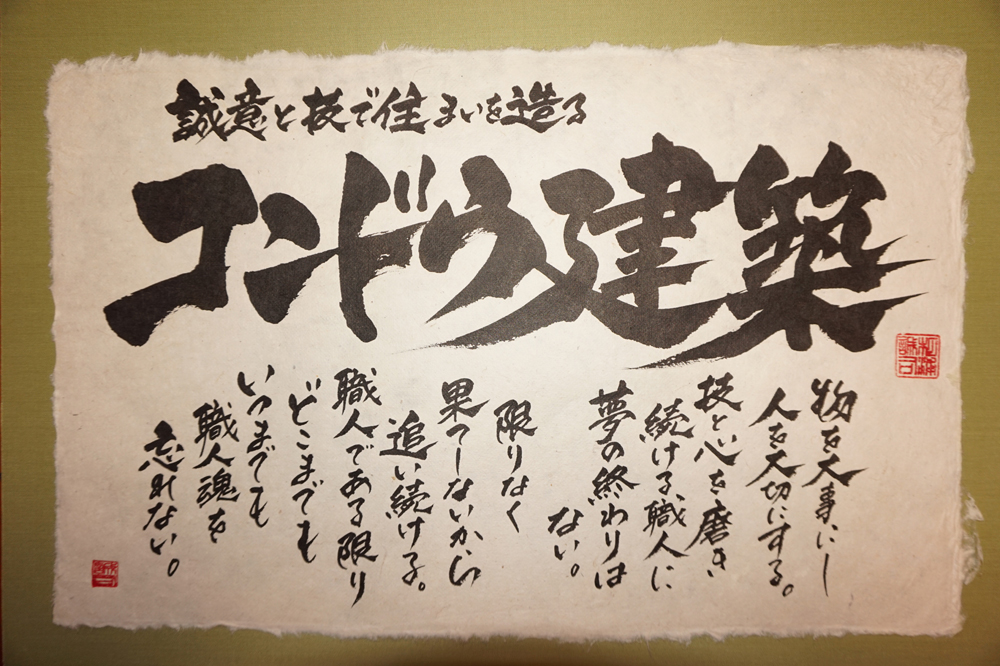 誠意と技で住まいを造る
コンドウ建築
物を大事にし
人を大切にする。
技と心を磨き
続ける職人に
夢の終わりは
ない。
限りなく
果てしないから
追い続ける。
職人である限り
どこまでも
いつまでも
職人魂を
忘れない。